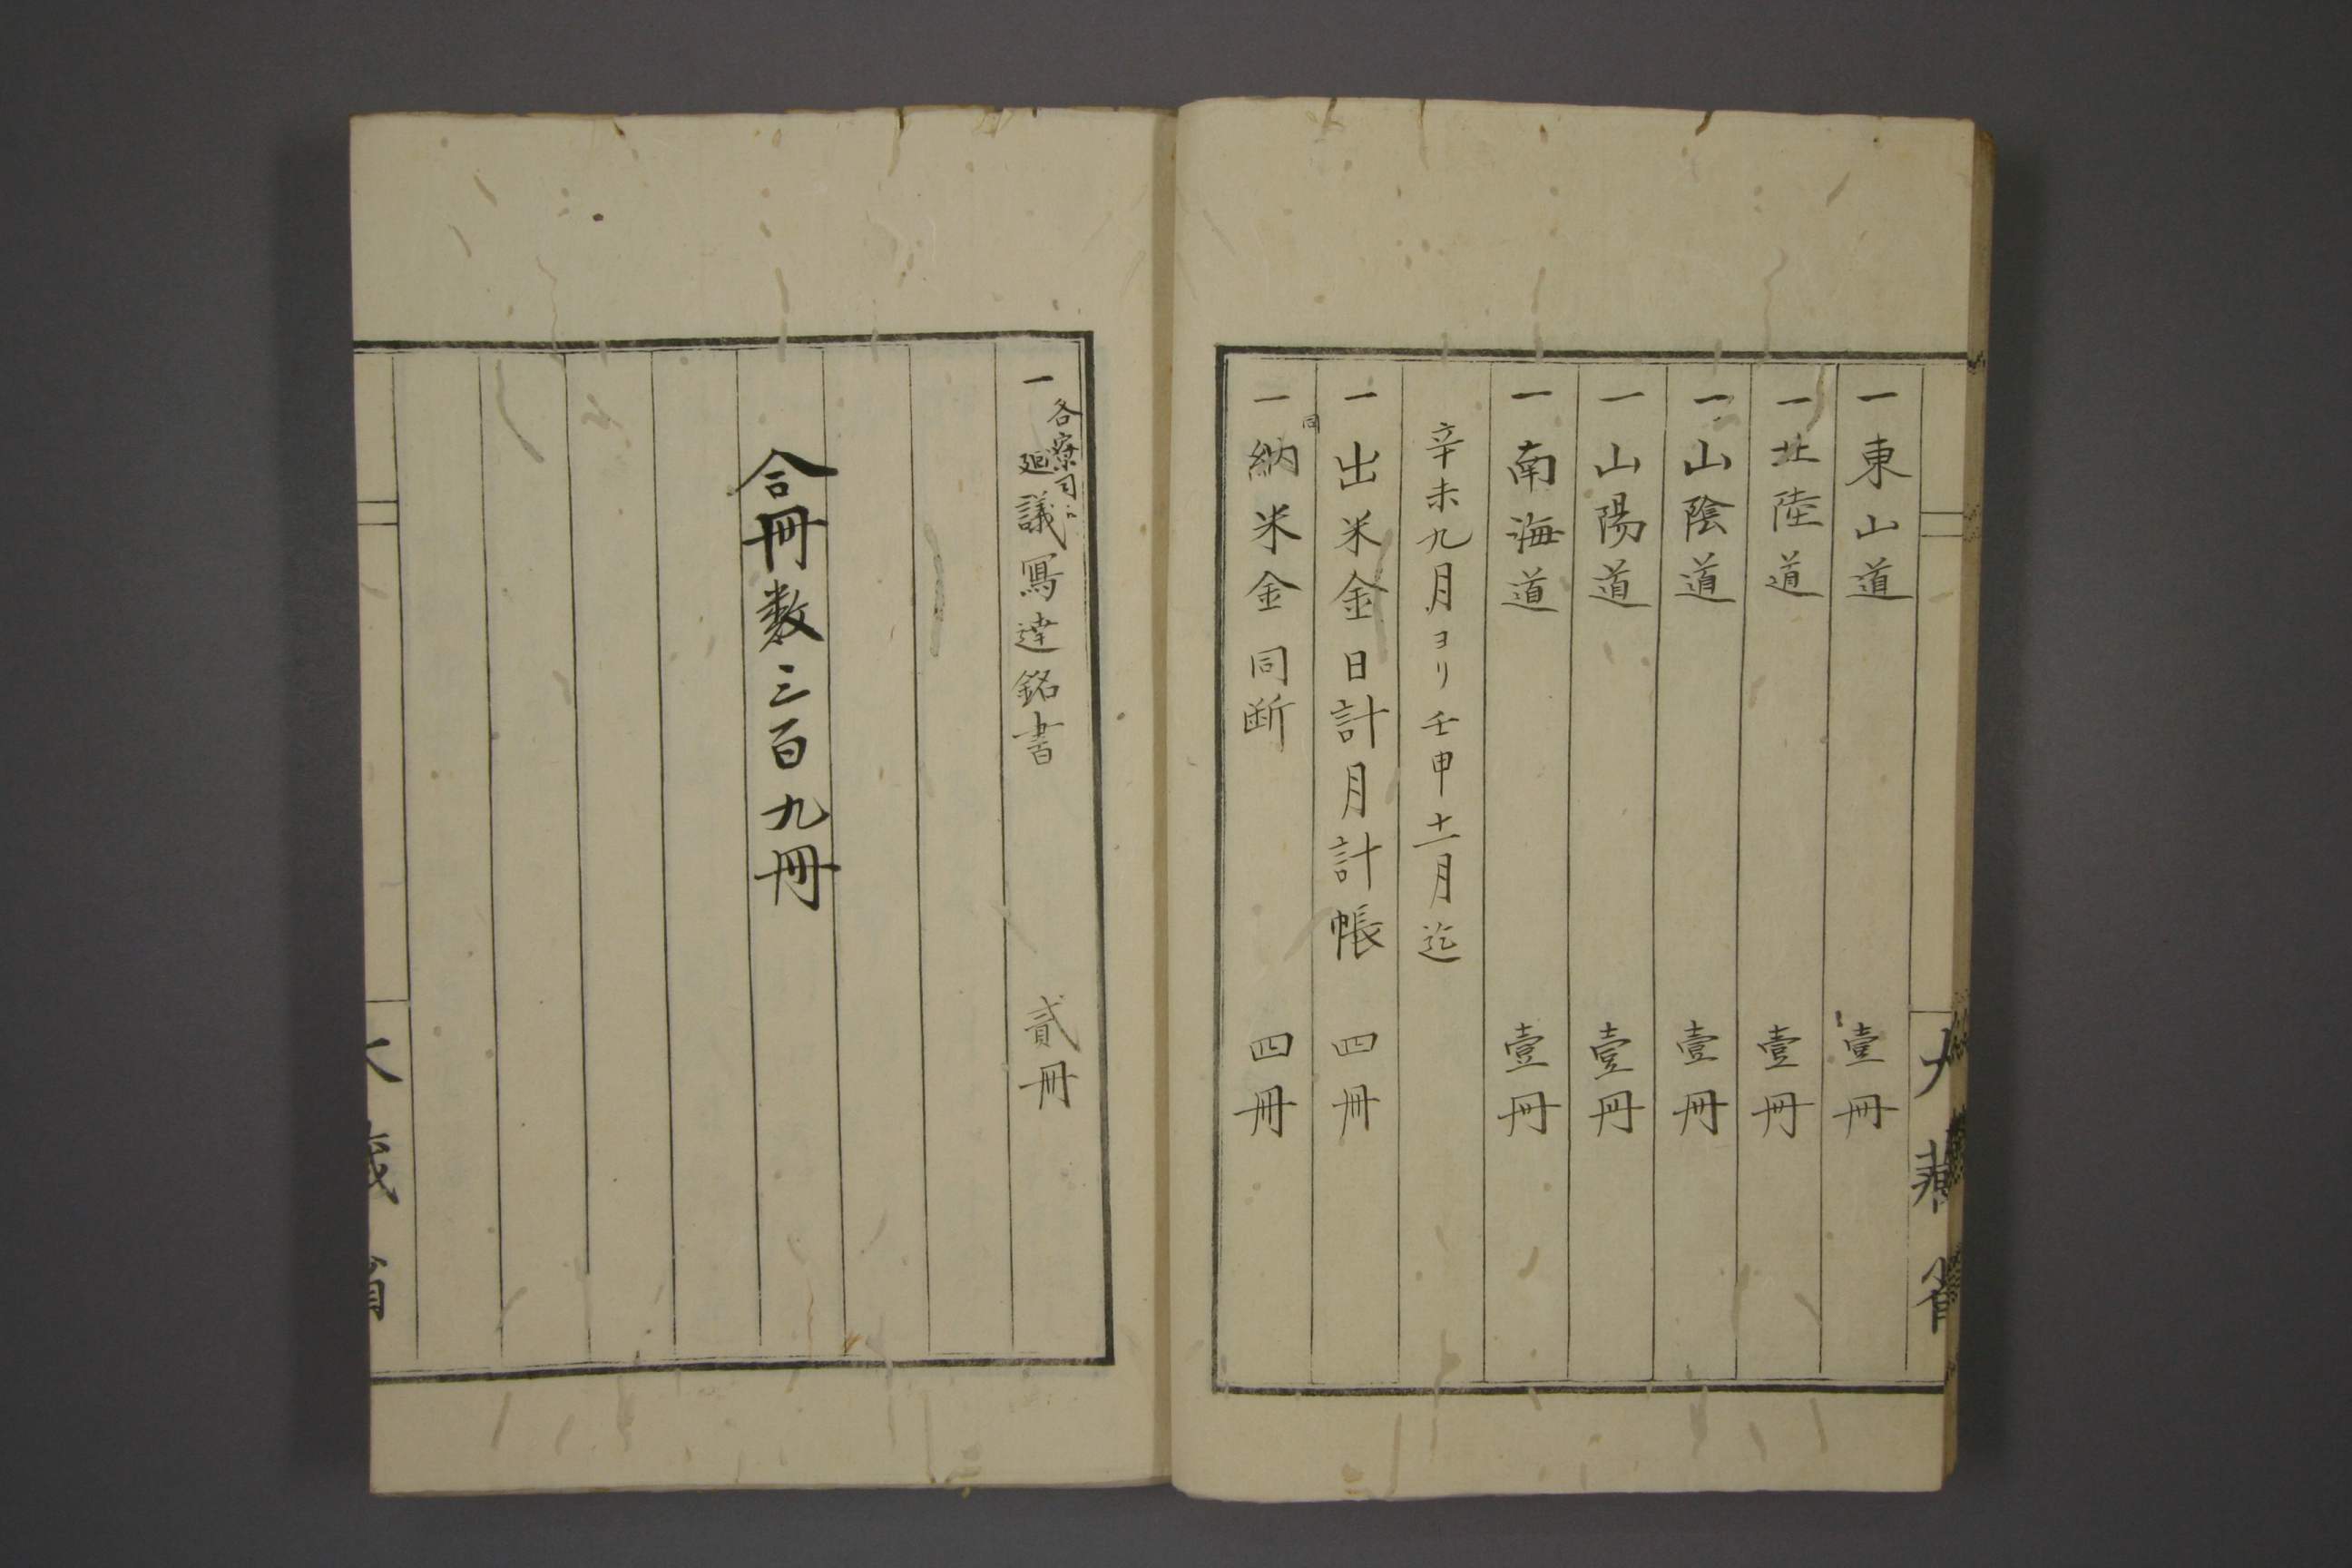 一東山道 壹冊
一北陸道 壹冊
一山陰道 壹冊
一山陽道 壹冊
一南海道 壹冊
辛未九月ヨリ壬申十一月迄
一出米金日計月計帳 四冊
同
一納米金同断 四冊
大藏省
各寮司
一廻議寫達銘書 貳冊
合冊数三百九冊
大藏省